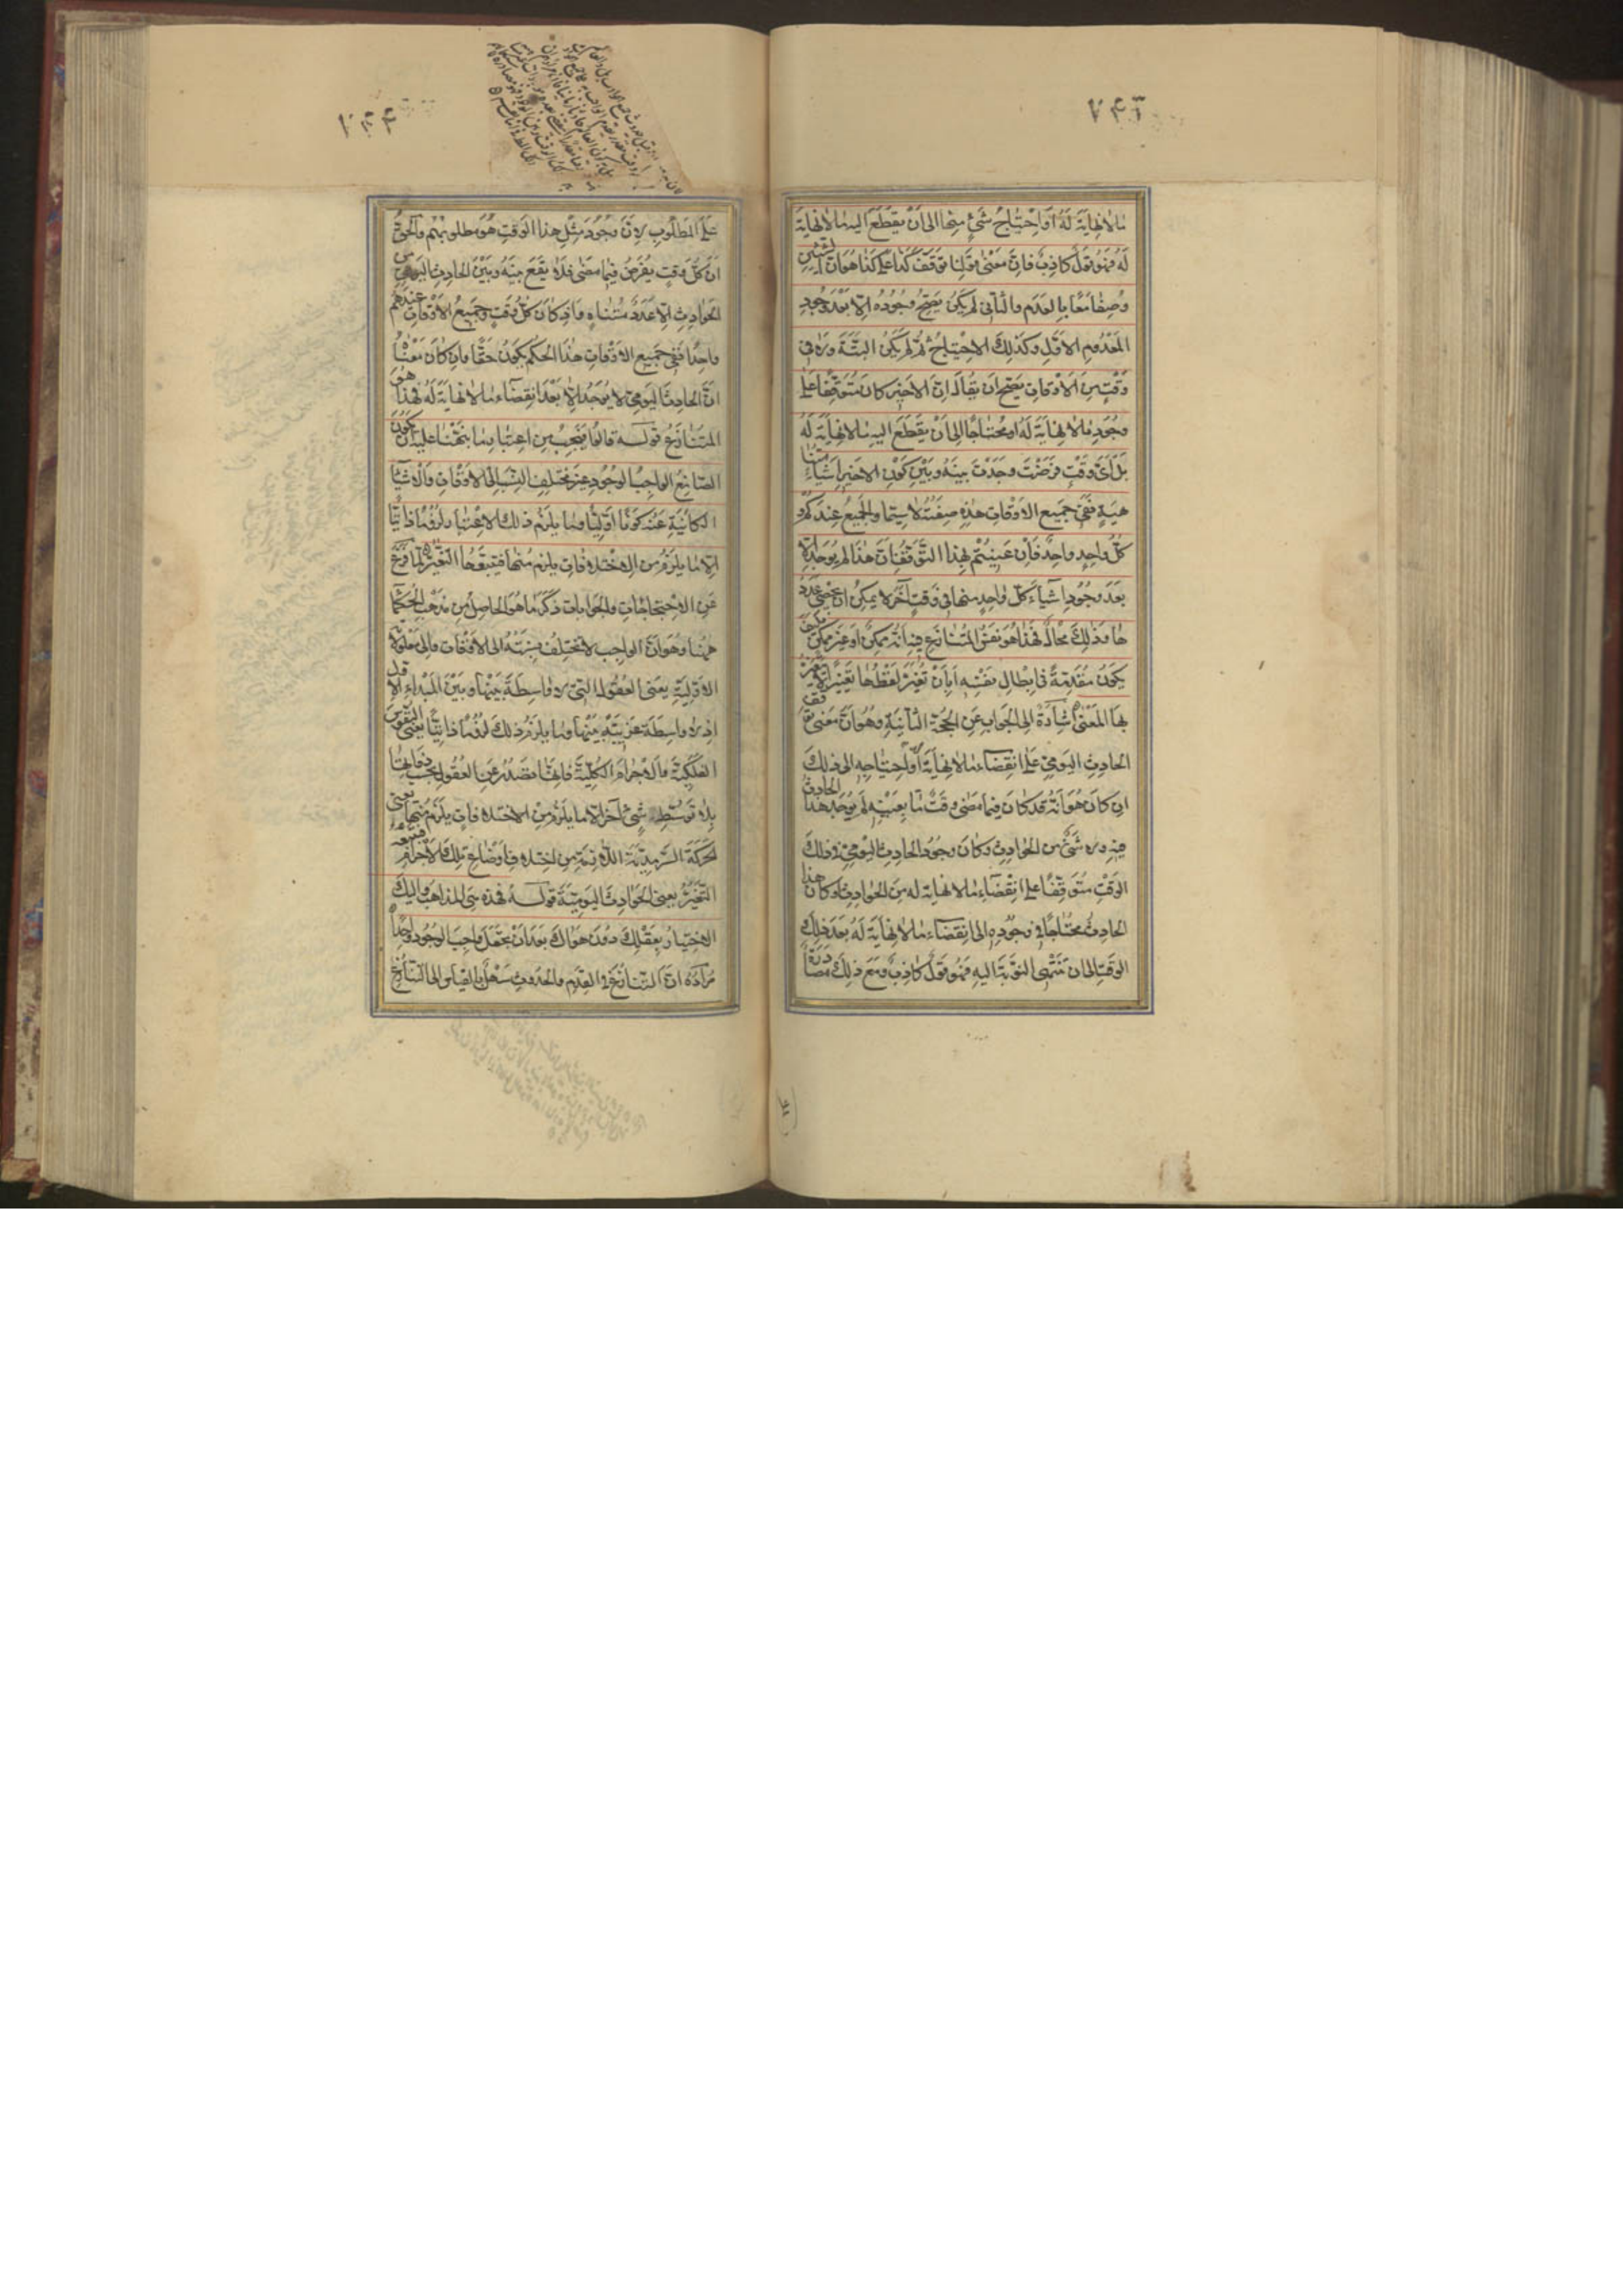 ما لا نهاية له او احتياج شئ منها الى ان يقطع اليه ما لا نهاية
له فهو قول كاذب فان معنى قولنا توقف كذا على كذا هو ان الشيئين
وصفا معا بالعدم والثانى لم يكن يصح وجوده الا بعد وجود
المعدوم الاول وكذلك الاحتياج ثم لم يكن البتة ولا فى
وقت من الاوقات يصح ان يقال ان الاخير كان متوقفا على
وجود ما لا نهاية له او محتاجا الى ان يقطع اليه ما لا نهاية له
بل اى وقت فرضت وجدت بينه وبين كون الاخير اشياء متنا
هية ففى جميع الاوقات هذه صفته لا سيما والجميع عندكم و
كل واحد واحد فان عنيتم بهذا التوقف ان هذا لم يوجد الا
بعد وجود اشياء كل واحد منها فى وقت آخر لا يمكن ان يحصى عدد
ها وذلك محال فهذا هو نفس المتنازع فيه انه ممكن او غير ممكن فكيف
يكون مقدمة فى ابطال نفسه ابان تغير لفظها تغيرا لا يتغير
بها المعنى اشارة الى الجواب عن الحجة الثانية وهو ان معنى توقف
الحادث اليومى على انقضاء ما لا نهاية او احتياجه الى ذلك
ان كان هو انه قد كان فيما مضى وقت ما بعينه لم يوجد هذا الحادث
فيه ولا شئ من الحوادث وكان وجود الحادث اليومى فى ذلك
الوقت متوقفا على انقضاء ما لا نهاية له من الحوادث او كان هذا
الحادث محتاجا فى وجوده الى انقضاء ما لا نهاية له بعد ذلك
الوقت الى ان تنتهى النوبة اليه فهو قول كاذب ومع ذلك مصادرة
على المطلوب لان وجود مثل هذا الوقت هو مطلوبهم والحق
ان كل وقت يفرض فيما مضى فلا يقع بينه وبين الحادث اليومى من
الحوادث الا عدد متناه واذ كان كل وقت وجميع الاوقات عندهم
واحدا ففى جميع الاوقات هذا الحكم يكون حقا وان كان معناه
ان الحادث اليومى لا يوجد الا بعد انقضاء ما لا نهاية له فهذا هو
المتنازع قوله قالوا فيجب من اعتبار ما نبهنا عليه ان يكون
الصانع الواجب الوجود غير مختلف النسب الى الاوقات والاشياء
الكائنة عنه كونا اوليا وما يلزم ذلك الاعتبار لزوما ذاتيا
الا ما يلزم من اختلافات يلزم منها فيتبعها التغير لما فرغ
عن الاحتجاجات والجوابات ذكر ما هو الحاصل من مذهب الحكماء
ههنا وهو ان الواجب لا تختلف نسبته الى الاوقات والى معلولاته
الاولية يعنى العقول التى لا واسطة بينها وبين المبداء الاول
اذ لا واسطة غريبة بينها وما يلزم ذلك لزوما ذاتيا يعنى النفوس
الفلكية والاجرام الكلية فانها تصدر عن العقول بحسب ذواتها
بلا توسط شئ آخر الا ما يلزم من اختلافات يلزم منها يعنى
الحركة السرمدية اللازمة من اختلاف اوضاع تلك الاجرام فيتبعها
التغير يعنى الحوادث اليومية قوله فهذه هى المذاهب واليك
الاختيار بعقلك دون هواك بعد ان تجعل واجب الوجود واحدا
مراده ان التنازع فى القدم والحدوث سهل بالقياس الى التنازع